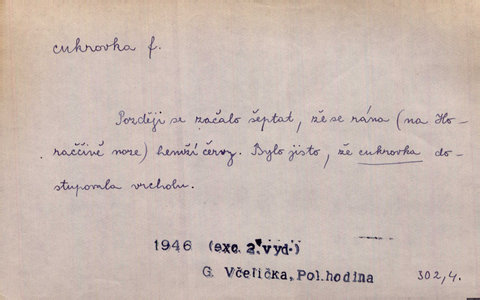 cukrovka f.
Později se začalo šeptat, že se rána (na Ho-
raččině noze) hemží červy. Bylo jisto, že cukrovka do-
stupovala vrcholu.
1946 (exc. 2. vyd.)
G. Včelička, Pol. hodina
302,4.